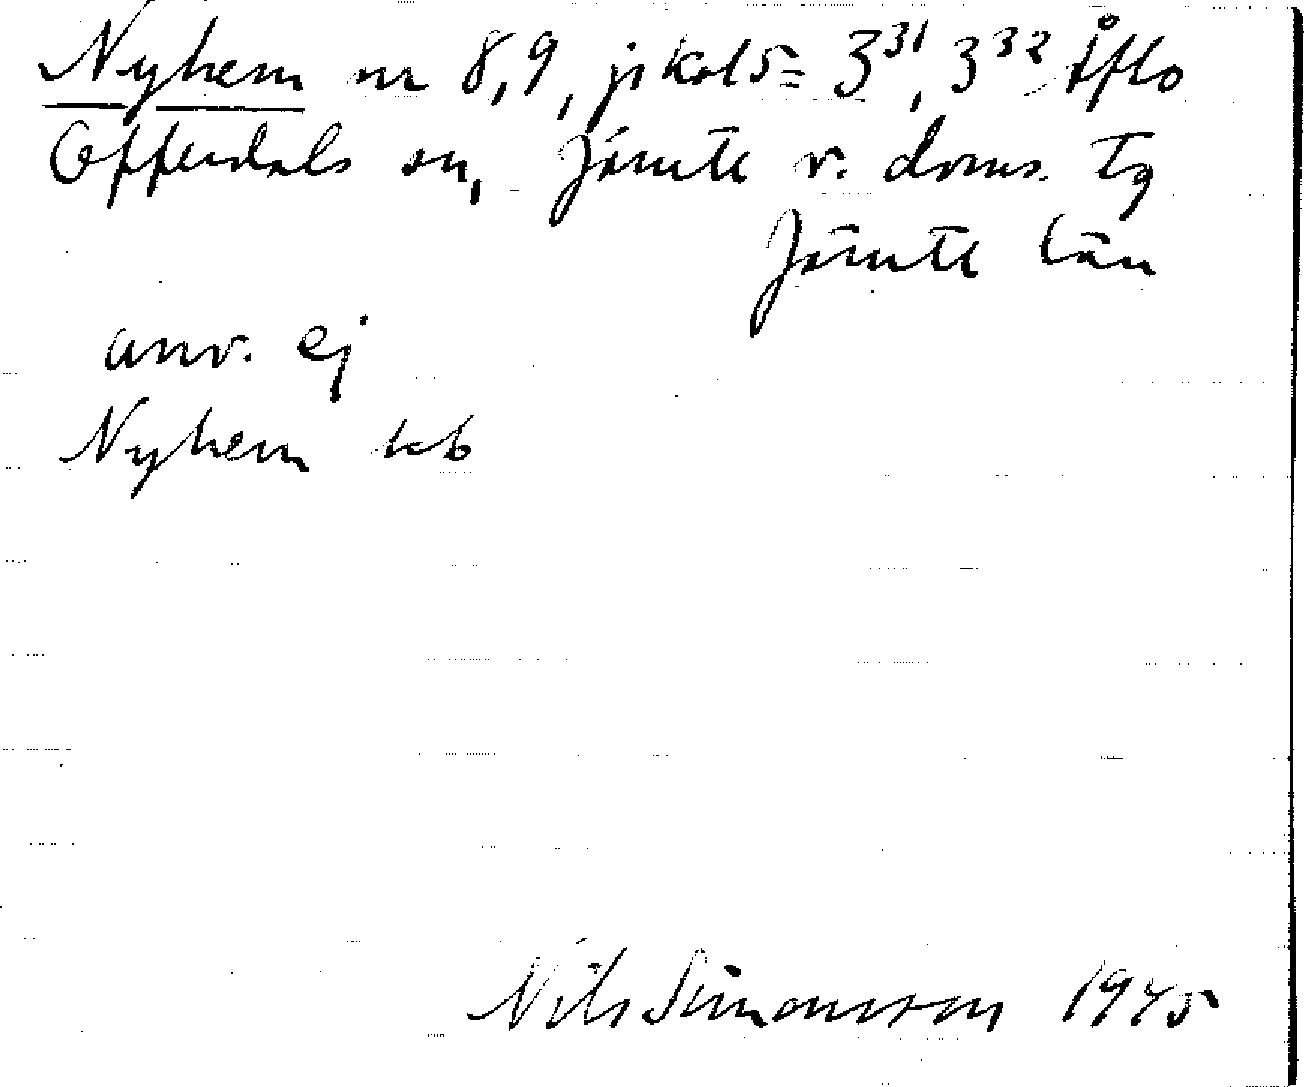 Nyhem nr 8,9, jikols= 3³¹, 3³² Åflo
Offerdals sn, Jämtl v. doms. tg
Jämtl län
anv. ej
Nyhem kb
Nils Simonsson 1945